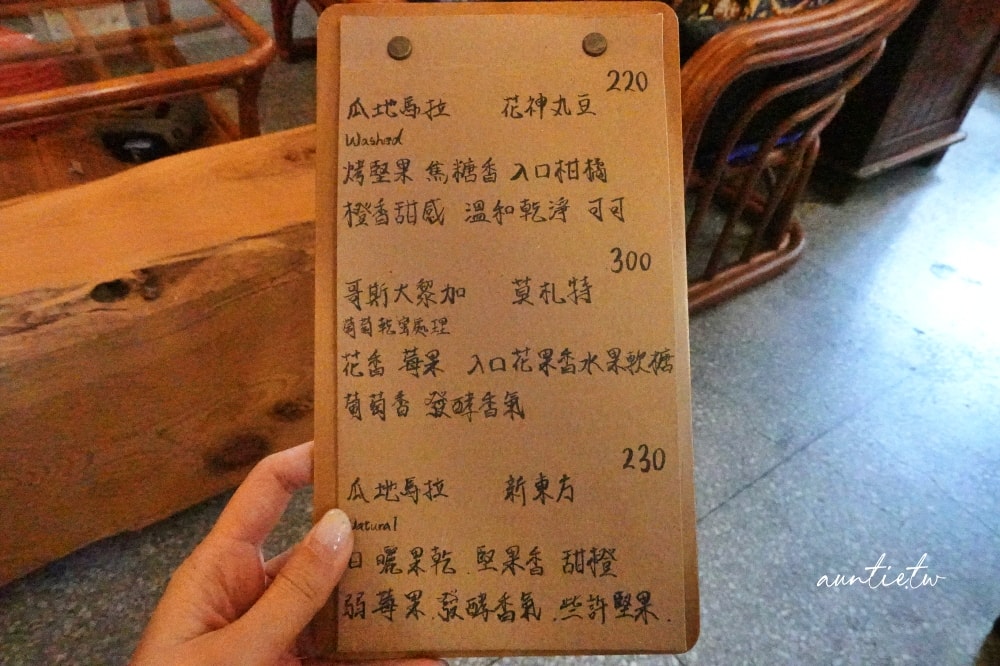 220
瓜地馬拉 花神丸豆
Washed
烤堅果 焦糖香 入口柑橘
橙香甜感 溫和乾淨 可可
300
哥斯大黎加 莫札特
葡萄乾蜜處理
花香 莓果 入口花果香水果軟糖
葡萄香 發酵香氣
230
瓜地馬拉 新東方
Natural
日曬果乾.堅果香 甜橙
弱莓果.發酵香氣.些許堅果.
auntie.tw